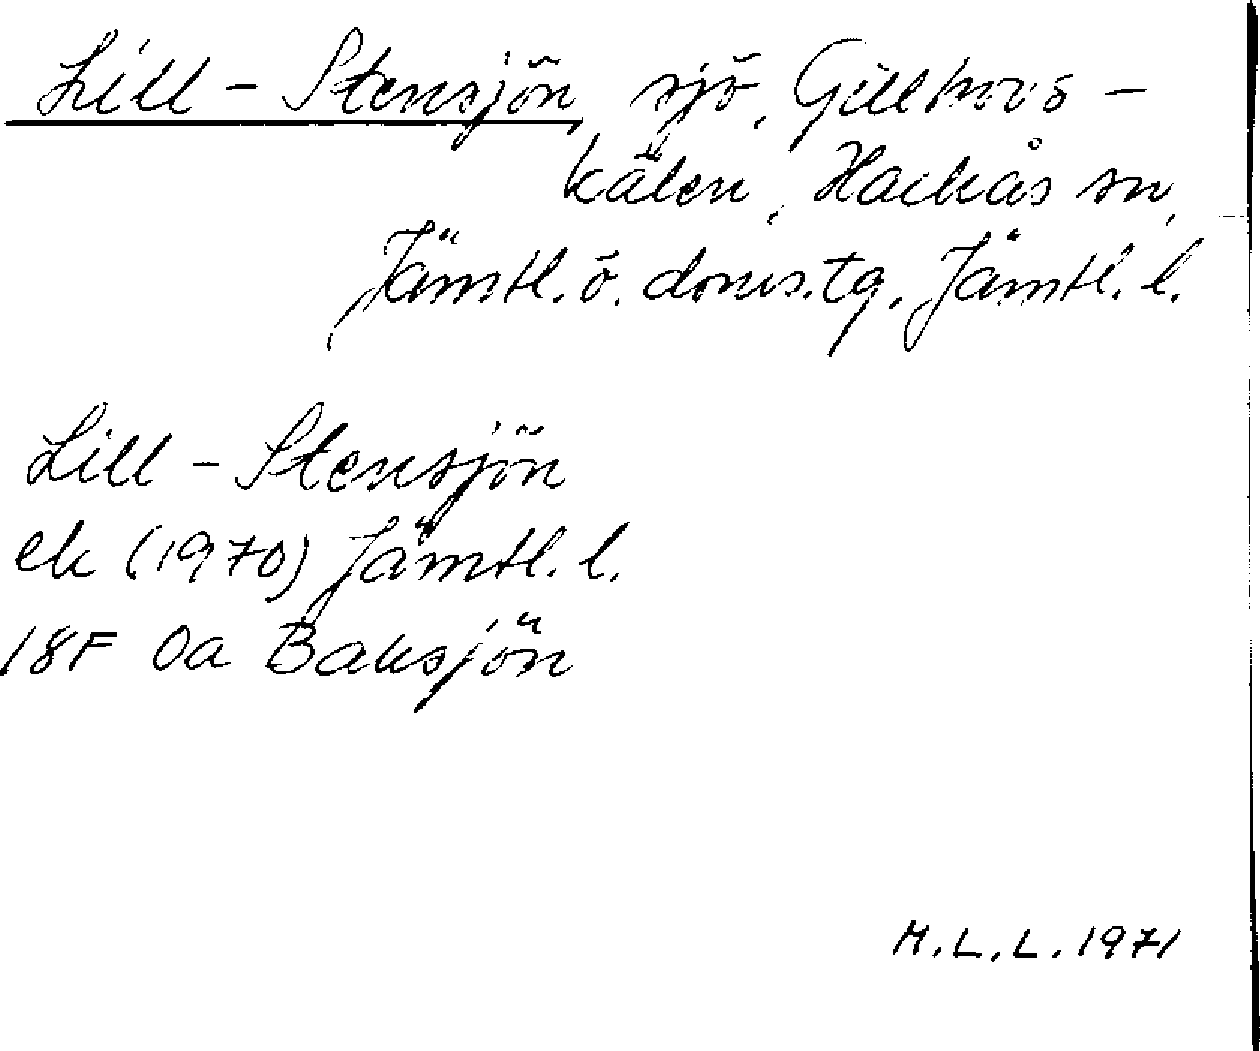 Lill-Stensjön, sjö, Gillhovs-
kälen, Hackås sn,
Jämtl. ö. doms.tg, Jämtl. l.
Lill-Stensjön
ek (1970) Jämtl. l.
18F 0a Baksjön
H.L.L. 1971